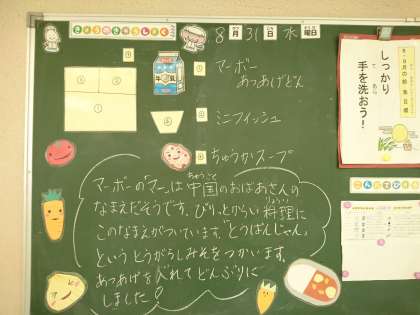 きょうのきゅうしょく
8月31日 水曜日
がつ
にち
ようび
牛乳
マーボー
あつあげどん
ミニフィッシュ
ちゅうかスープ
ちゅうごく
マーボーの「マー」は中国のおばあさんの
なまえだそうです。ぴりっとからい料理に
りょうり
このなまえがついています。「とうばんじゃん」
というとうがらしみそをつかいます。
あつあげを入れてどんぶりに
しました!
8・9月の給食目標
しっかり
手を洗おう!
て
あら
こんだてひょう